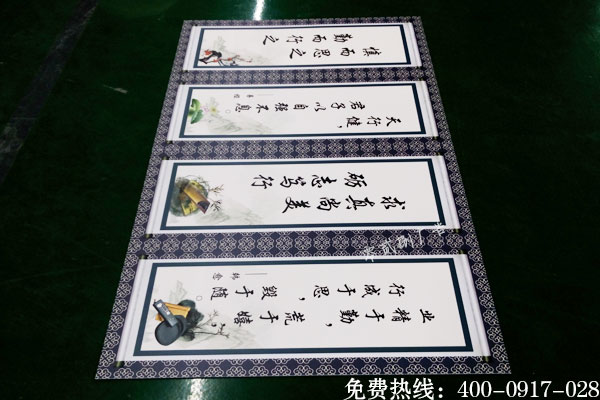 慎而思之
勤而行之
天行健，
君子以自强不息
求真尚美
砺志笃行
业精于勤，荒于嬉；
行成于思，毁于随
韩愈
免费热线：400-0917-028